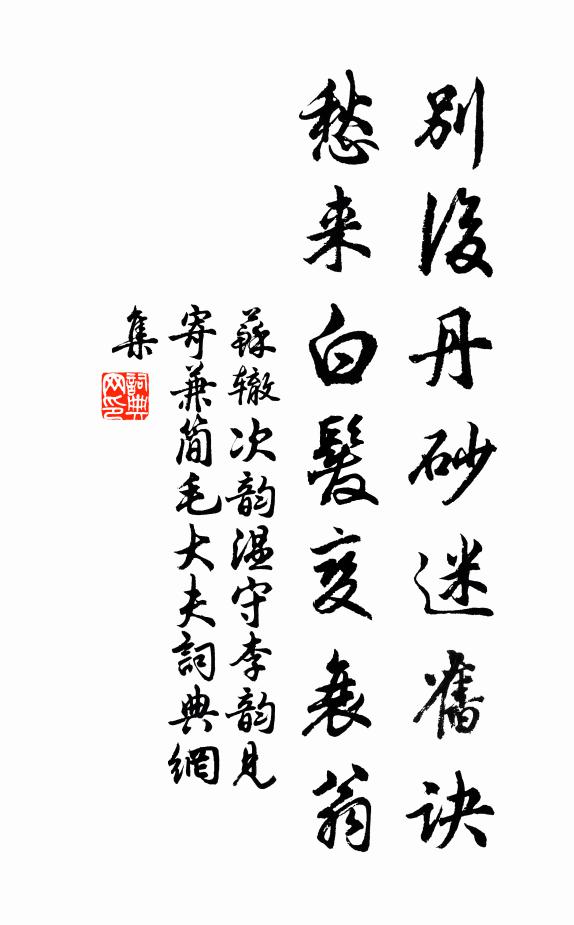 別後丹砂迷舊诀
愁来白髮变衰翁
蘇辙次韵温守李韵見
寄兼简毛大夫詞典網
集
詞典网印